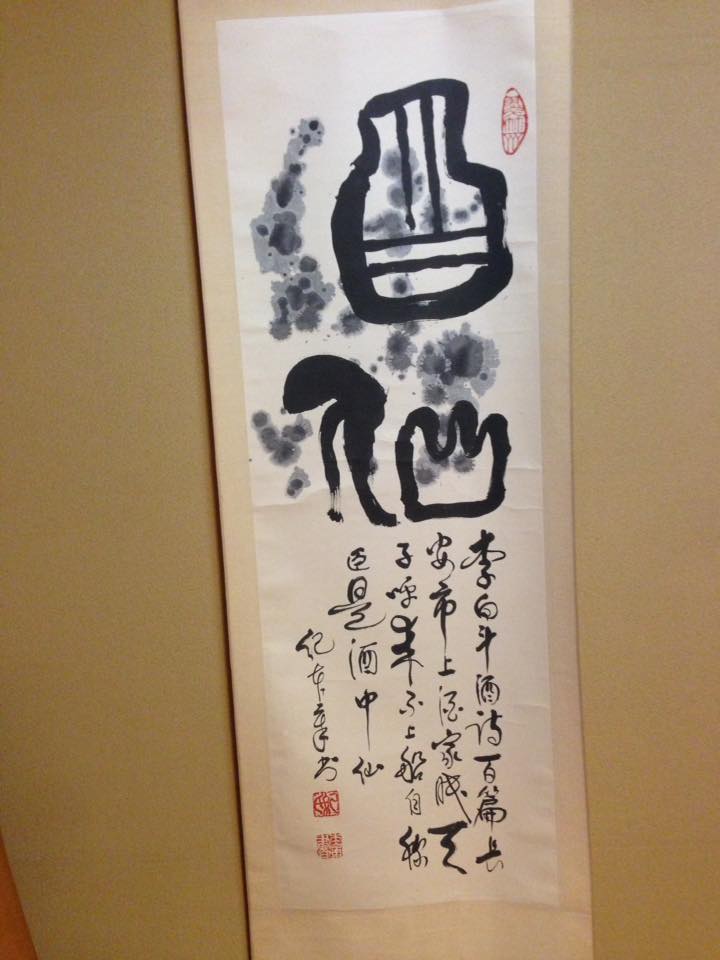 酉
仙
李白斗酒诗百篇长
安市上酒家眠天
子呼来不上船自称
臣是酒中仙